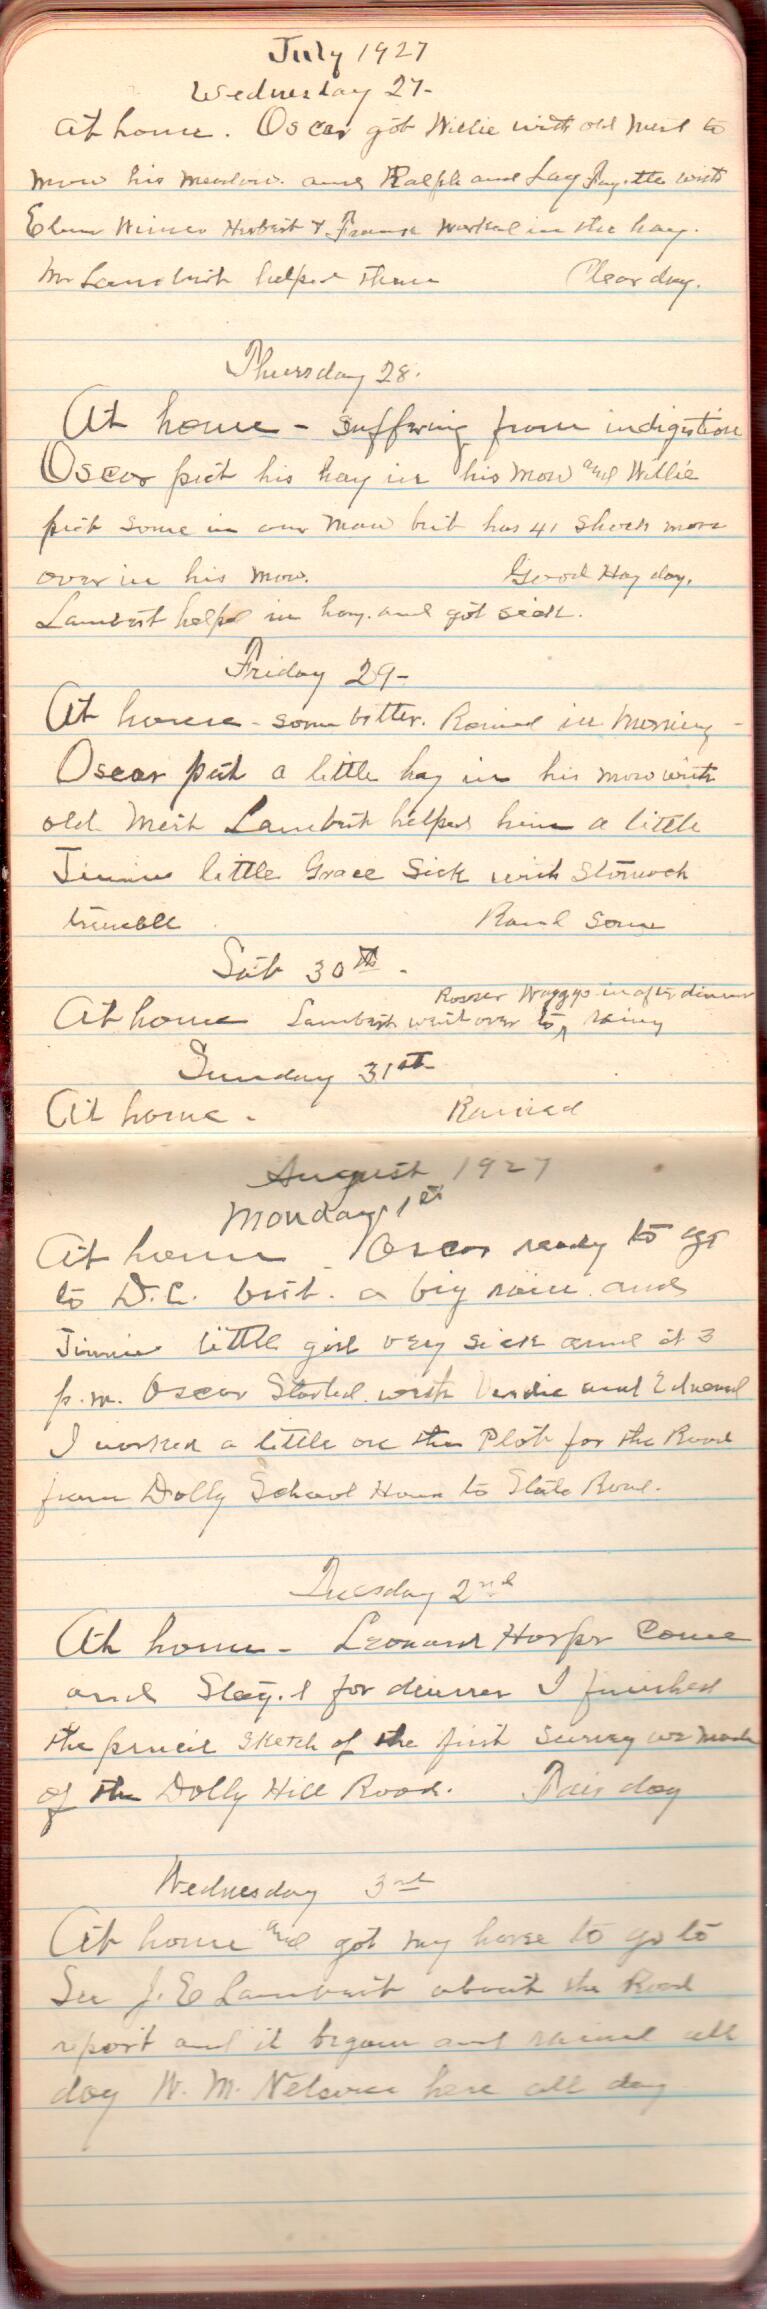 July 1927
Wednesday 27-
At home. Oscar got Willie with old Mert to
mow his meadow. and Ralph and Lafayette with
Herbert & worked in the hay.
Mr Lambert helped them Clear day.
Thursday 28.
At home - suffering from indigestion
Oscar put his hay in his mow and Willie
put some in our mow but has 41 shock more
over in his mow. Good Hay day.
Lambert helped in hay. and got sick.
Friday 29-
At home - some better. Rained in morning -
Oscar put a little hay in his mow with
old Mert Lambert helped him a little
Jinnie little Grace Sick with Stomach
trouble Raind some
Sat 30th.
Rosser Waggys in after dinner
At home Lambert went over to rainy
Sunday 31st
At home. Rained
August 1927
Monday 1st
At home Oscar ready to go
to D.C. but. a big rain and
Jinnie little girl very sick and at 3
p.m. Oscar Started with and Edward
I worked a little on the Plot for the Road
from Dolly School House to State Road.
Tuesday 2nd
At home - Leonard Harper Come
and Stay.d for dinner I finished
the pencil sketch of the first Survey we made
of the Dolly Hill Road. Fair day
Wednesday 3rd
At home and got my horse to go to
See J. E Lambert about the Road
report and it began and rained all
day W. M. Nelson here all day